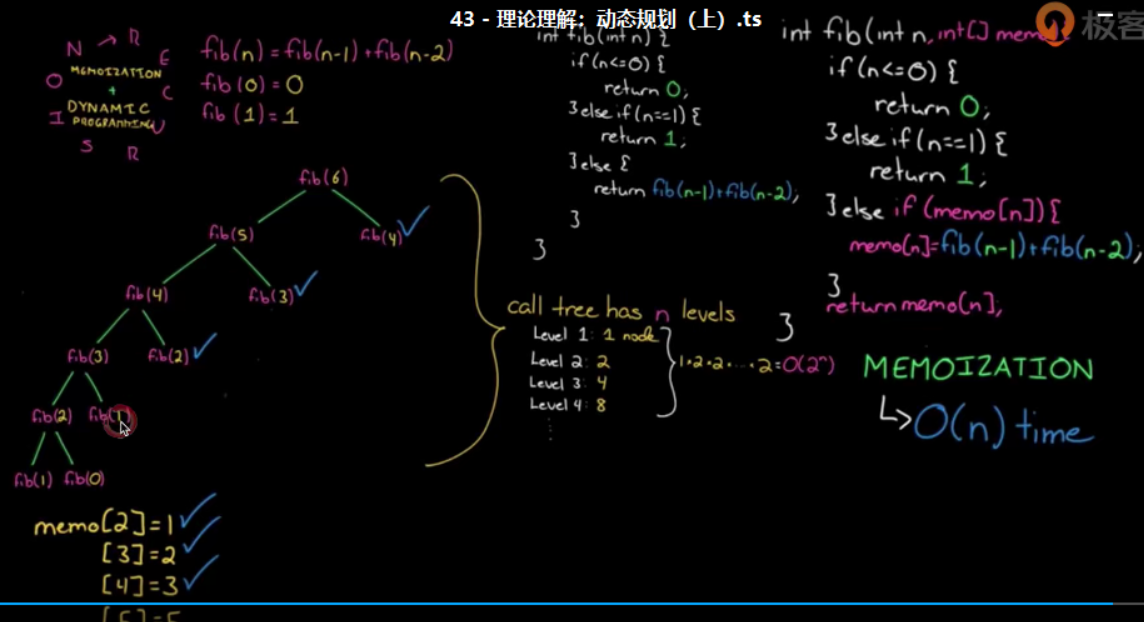 43 - 理论理解：动态规划（上）.ts
极客
N → R
E
MEMOIZATION
O
+
C
DYNAMIC
I
PROGRAMMING
U
S
R
fib(n) = fib(n-1) + fib(n-2)
fib (0) = 0
fib (1) = 1
fib(6)
fib(5)
fib(4)
fib(4)
fib(3)
fib(3)
fib(2)
fib(2)
fib(1)
fib(1)
fib(0)
memo[2]=1
[3]=2
[4]=3
[5]=5
int fib(int n) {
if (n<=0) {
return 0;
}else if(n==1) {
return 1;
}else {
return fib(n-1)+fib(n-2);
}
}
call tree has n levels
Level 1: 1 node
Level 2: 2
Level 3: 4
Level 4: 8
⋮
1·2·2·...·2=O(2ⁿ)
int fib(int n, int[] memo
if(n<=0) {
return 0;
}else if(n==1) {
return 1;
}else if (memo[n]){
memo[n]=fib(n-1)+fib(n-2);
}
return memo[n];
}
MEMOIZATION
↳ O(n) time